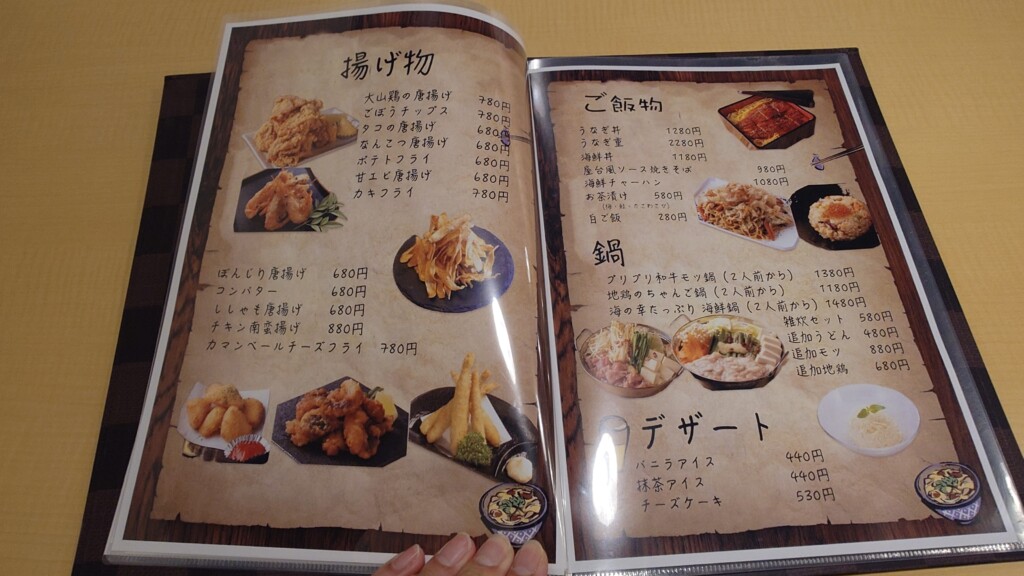 揚げ物
大山鶏の唐揚げ 780円
ごぼうチップス 780円
タコの唐揚げ 680円
なんこつ唐揚げ 680円
ポテトフライ 680円
甘エビ唐揚げ 680円
カキフライ 780円
ぼんじり唐揚げ 680円
コンバター 680円
ししゃも唐揚げ 680円
チキン南蛮揚げ 880円
カマンベールチーズフライ 780円
ご飯物
うなぎ丼 1280円
うなぎ重 2280円
海鮮丼 1180円
屋台風ソース焼きそば 980円
海鮮チャーハン 1080円
お茶漬け 580円
白ご飯 280円
鍋
プリプリ和牛モツ鍋(2人前から) 1380円
地鶏のちゃんこ鍋(2人前から) 1180円
海の幸たっぷり海鮮鍋(2人前から) 1480円
雑炊セット 580円
追加うどん 480円
追加モツ 880円
追加地鶏 680円
デザート
バニラアイス 440円
抹茶アイス 440円
チーズケーキ 530円